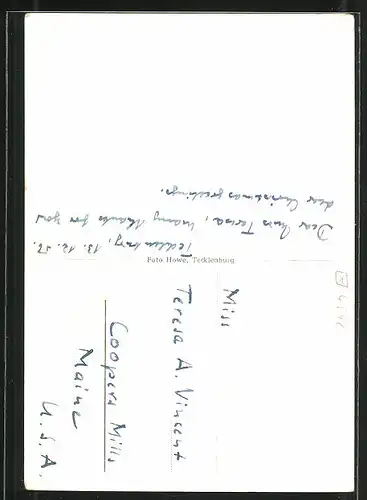 Tecklenburg, 13. 12. 57.
Dear Miss Teresa, many thanks for your
dear Christmas greetings.
Foto Howe, Tecklenburg
Miss
Teresa A. Vincent
Coopers Mills
Maine
U. S. A.